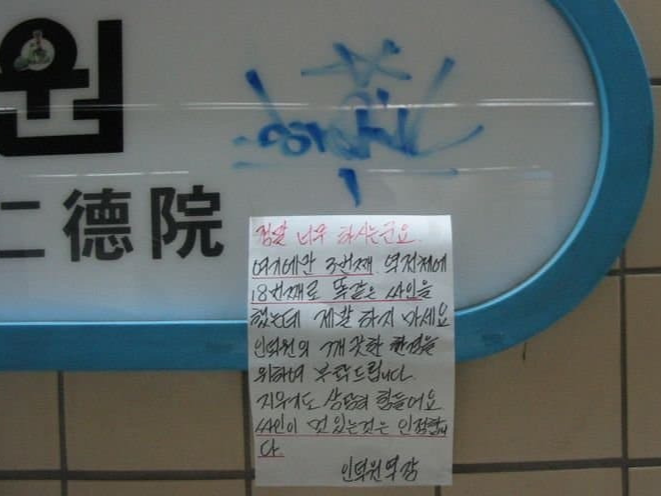 원
仁德院
정말 너무 하시는군요.
여기에만 3번째, 역전체에
18번째로 똑같은 싸인을
했는데 제발 하지 마세요
인덕원의 깨끗한 환경을
위하여 부탁드립니다.
지우기도 상당히 힘들어요
싸인이 멋있는것은 인정합니
다.
인덕원역장